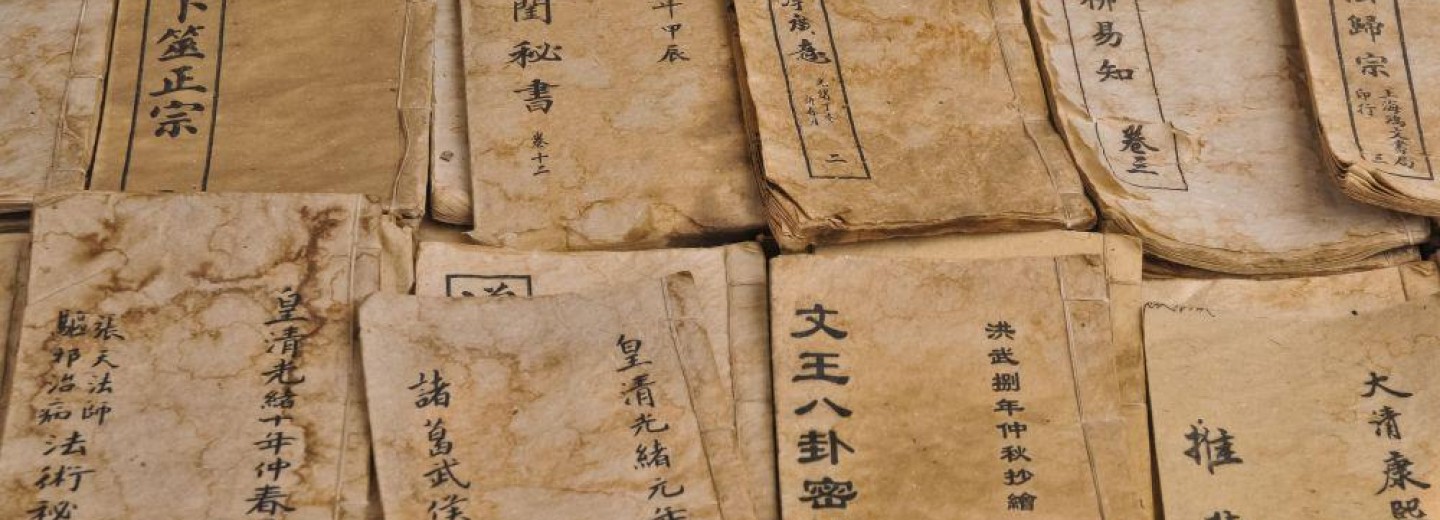 卜筮正宗
閨秘書
卷十二
年甲辰
二
柳易知
卷三
歸宗
上海鴻文書局
印行
三
張天法師
驅邪治病法術秘
皇清光緒十年仲春
諸葛武侯
皇清光緒元年
文王八卦密
洪武捌年仲秋抄繪
推
大清康熙